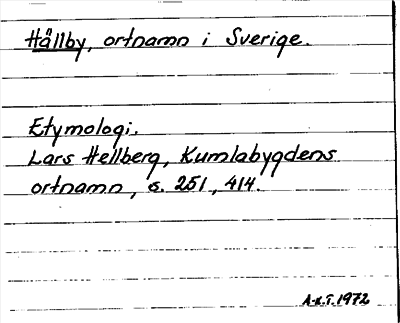 Hållby, ortnamn i Sverige.
Etymologi.
Lars Hellberg, Kumlabygdens
ortnamn, s. 251, 414.
A-K.T. 1972